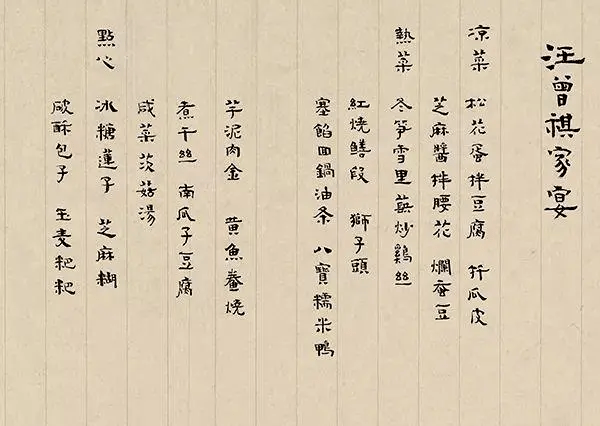 汪曾祺家宴
涼菜 松花蛋拌豆腐 扦瓜皮
芝麻醬拌腰花 爛蚕豆
熱菜 冬笋雪里蕻炒鷄絲
紅燒鱔段 獅子頭
塞餡回鍋油条 八寶糯米鴨
芋泥肉金 黄魚鯗燒
煮干絲 南瓜子豆腐
咸菜茨菇湯
點心 冰糖蓮子 芝麻糊
破酥包子 玉麦粑粑